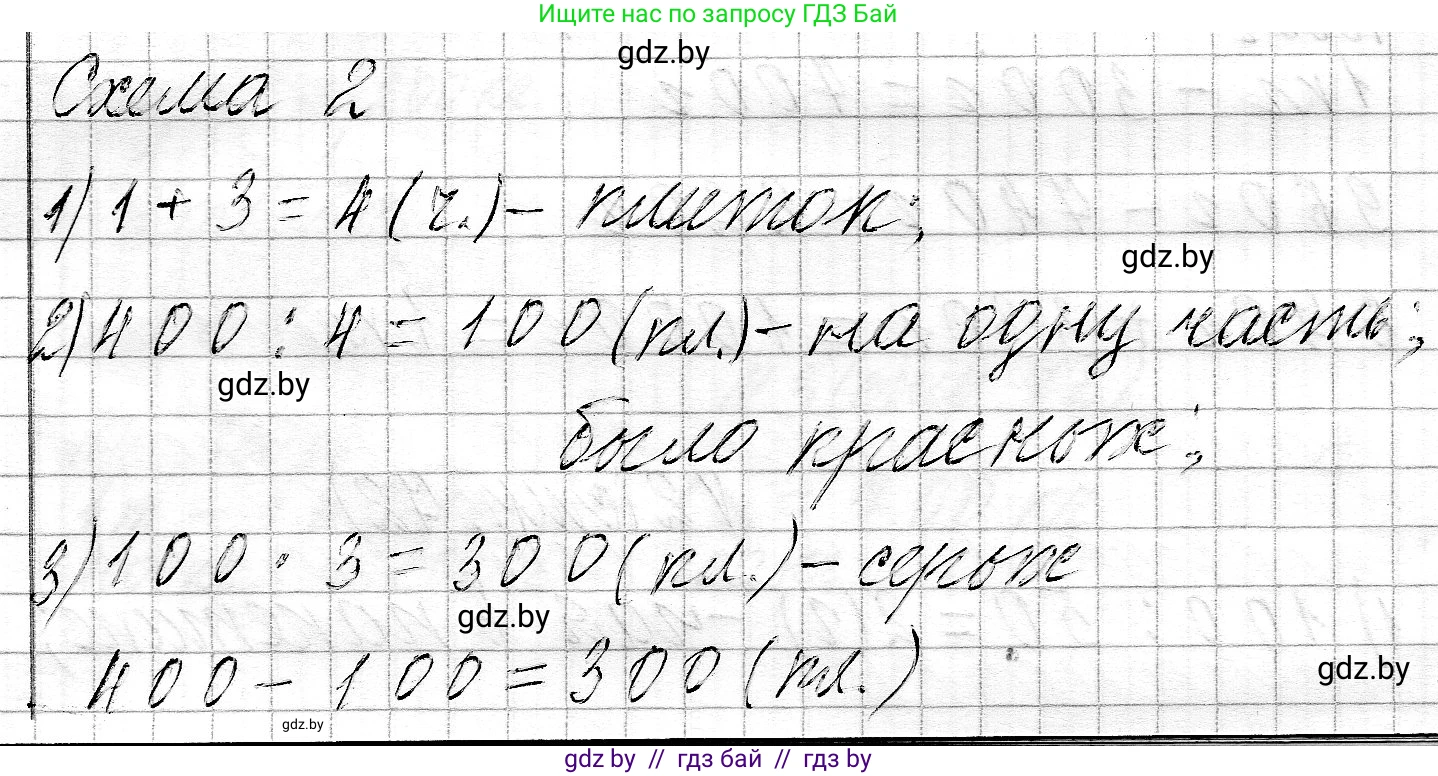 Ищите нас по запросу ГДЗ Бай
gdz.by
Схема 2
1) 1 + 3 = 4 (ч.) – плиток;
gdz.by
2) 400 : 4 = 100 (пл.) – на одну часть;
gdz.by
было красных;
3) 100 · 3 = 300 (пл.) – серых
gdz.by
400 – 100 = 300 (пл.)
gdz.by
gdz.by
gdz.by // гдз бай // гдз by